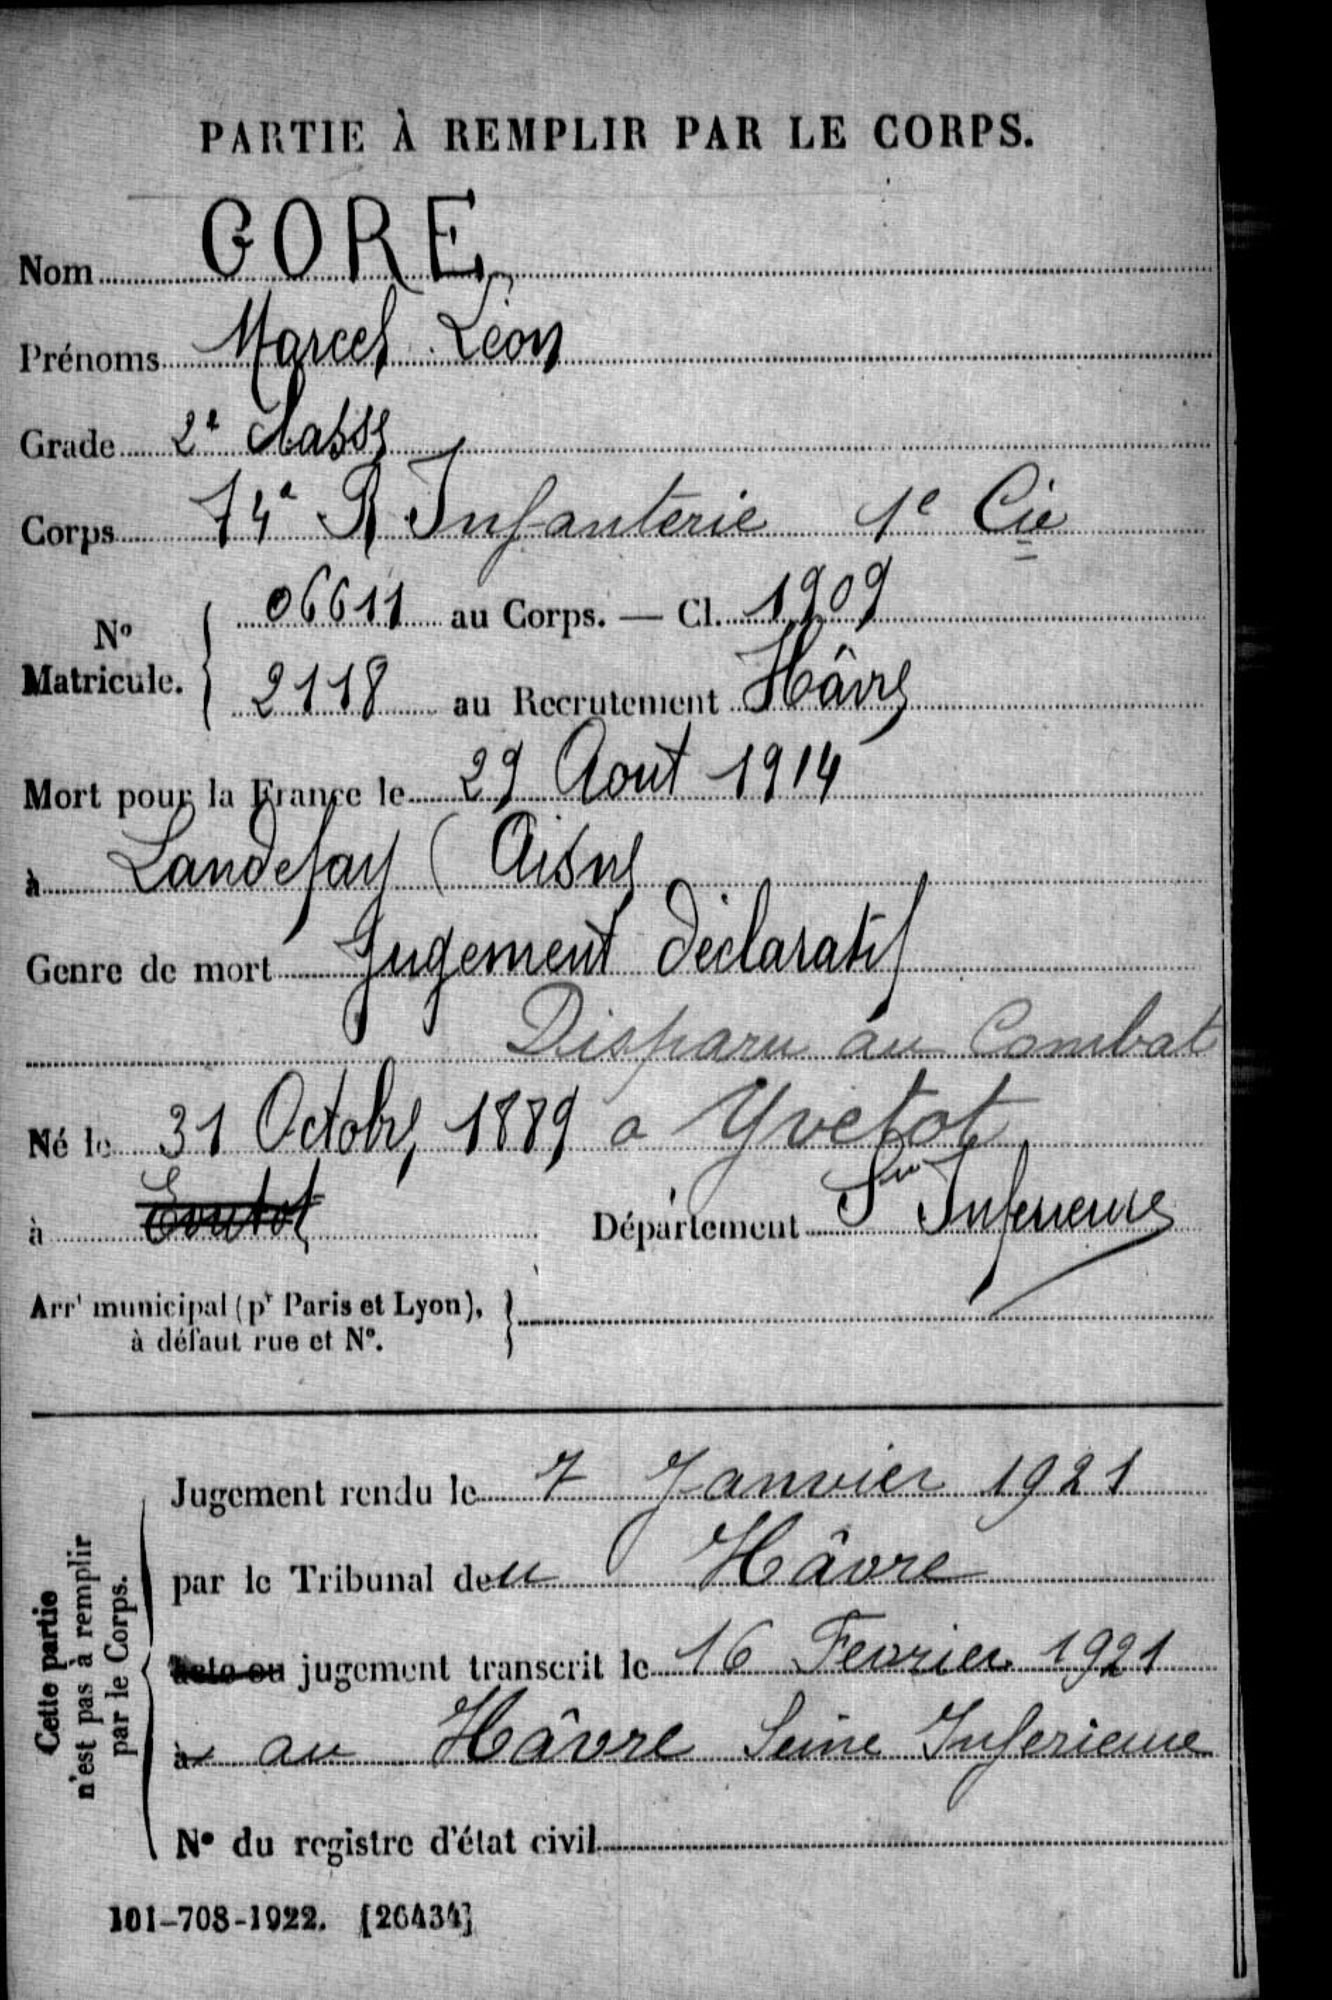 PARTIE À REMPLIR PAR LE CORPS.
Nom GORE
Prénoms Marcel Léon
Grade 2e classe
Corps 74e R Infanterie 1e Cie
No Matricule. { 06611 au Corps. — Cl. 1909
2118 au Recrutement Hâvre
Mort pour la France le 29 Aout 1914
à Landefay ( Aisne
Genre de mort Jugement déclaratif
Disparu au Combat
Né le 31 Octobre 1889 a Yvetot
à Département Sne Inferieure
Arrt municipal (pr Paris et Lyon), }
à défaut rue et No.
Cette partie n'est pas à remplir par le Corps.
Jugement rendu le 7 Janvier 1921
par le Tribunal de u Hâvre
acte ou jugement transcrit le 16 Fevrier 1921
à au Hâvre Seine Inferieure
No du registre d'état civil
101-708-1922. [26434]